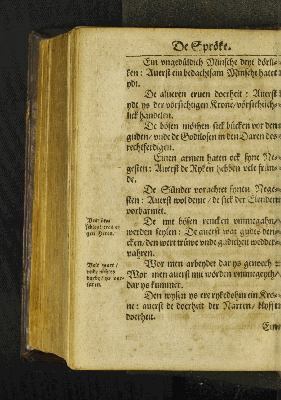 De Spröke.
Ein vngedüldich Minsche deyt dörli-
ken: Auerst ein bedachtsam Minsche hatet
ydt.
De alueren eruen doerheit: Auerst
ydt ys der vörsichtigen Krone, vörsichtich-
lick handelen.
De bösen möthen sick bücken vor den
guden, vnde de Godtlosen in den Dören des
rechtferdigen.
Einen armen haten ock syne Ne-
gesten: Auerst de Ryken hebben vele frün-
de.
De Sünder vorachtet synen Nege-
sten: Auerst wol deme, de sick der Elenden
vorbarmet.
De mit bösen rencken vmmeghan,
werden feylen: De auerst wat gudes den-
cken, den wert trüwe vnde gudicheit wedder-
varen.
Wor men arbeydet dar ys genoech:
Wor men auerst mit wörden vmmegeyt,
dar ys kummer.
Den wysen ys ere rykedohm ein Kro-
ne: auerst de doerheit der Narren, blyfft
doerheit.
Ein